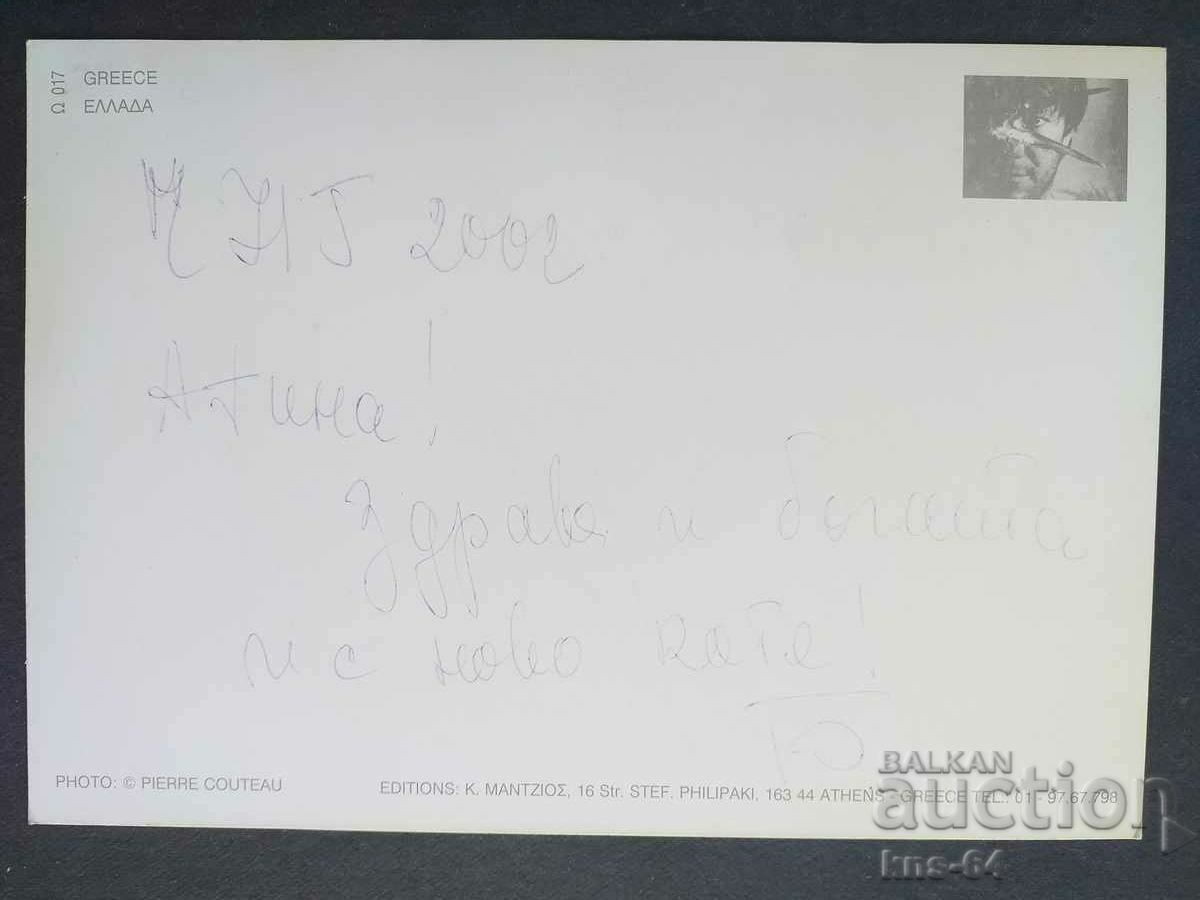 Ω 017
GREECE
ΕΛΛΑΔΑ
ЧНГ 2002
Атина!
Здраве и богата
и с ново коте!
Ю
PHOTO: © PIERRE COUTEAU
EDITIONS: Κ. ΜΑΝΤΖΙΟΣ, 16 Str. STEF. PHILIPAKI, 163 44 ATHENS - GREECE TEL.: 01 - 97.67.798
BALKAN
auction
kns-64